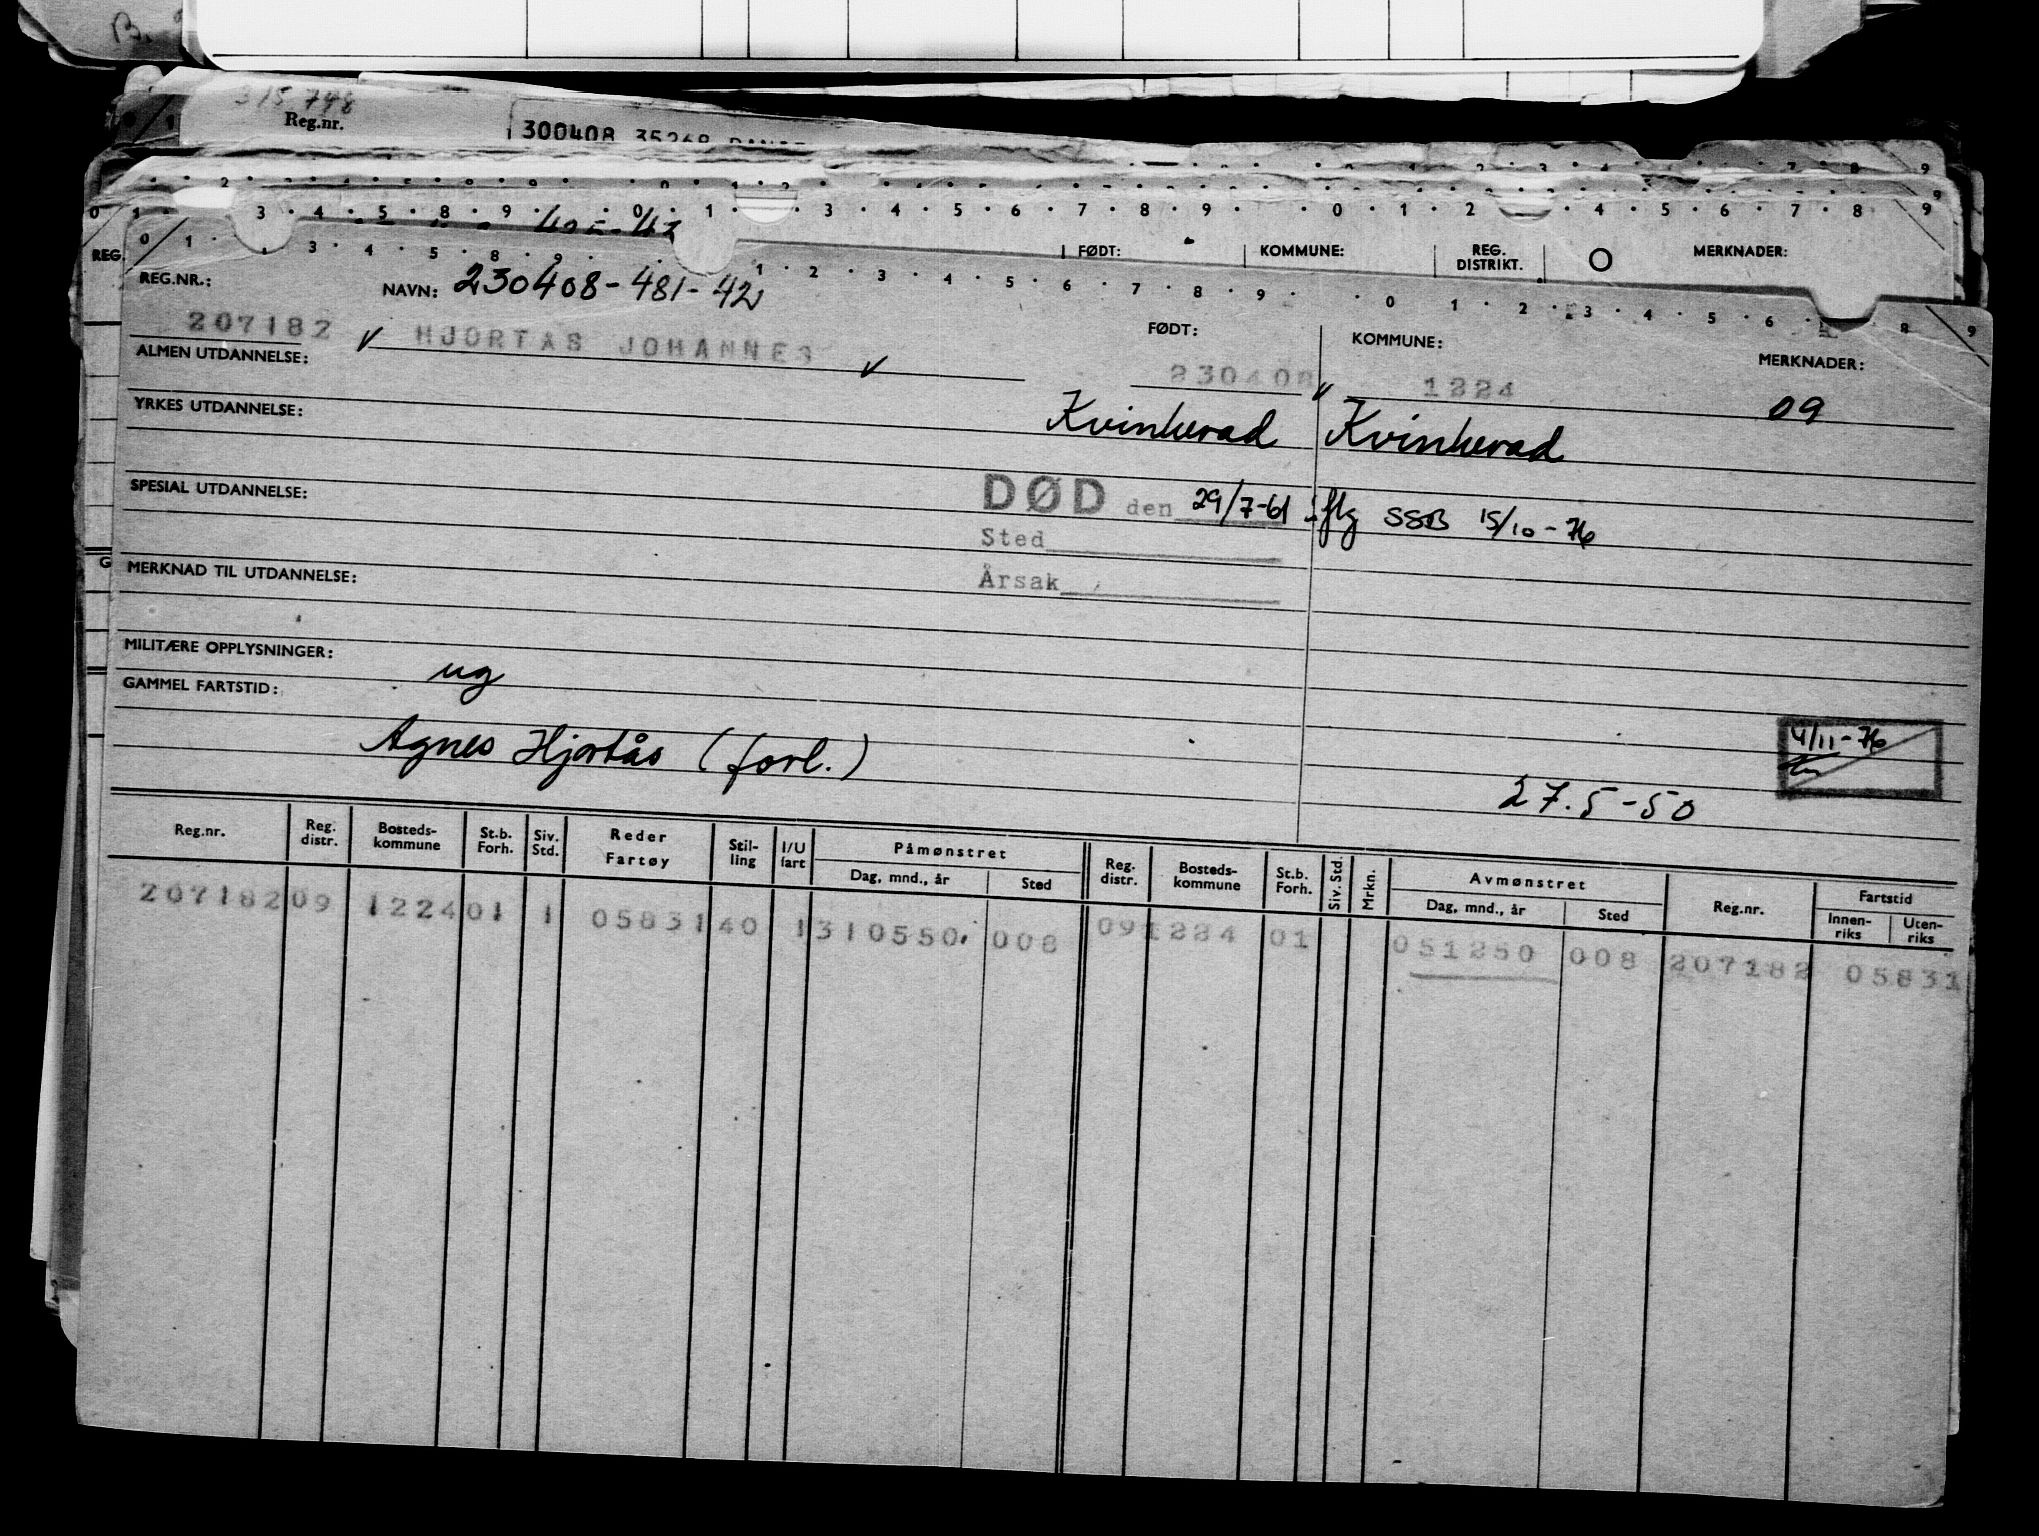 B.
315 798
Reg.nr.
300408 35268
0 1 2 3 4 5 8 9 0 1 3 4 5 6 7 8 9 0 1 2 4 5 6 7 8 9
REG.
FØDT:
KOMMUNE:
REG. DISTRIKT.
MERKNADER:
0 1 3 4 5 8 9 1 2 3 4 5 6 7 8 9 0 1 2 3 4 5 6 8 9
REG.NR.:
NAVN: 230408-481-42
207182 HJORTAS JOHANNES
FØDT:
230408
KOMMUNE:
1224
MERKNADER:
09
ALMEN UTDANNELSE:
YRKES UTDANNELSE:
Kvinherad Kvinherad
SPESIAL UTDANNELSE:
DØD den 29/7-61 iflg SSB 15/10-76
Sted
Årsak
MERKNAD TIL UTDANNELSE:
MILITÆRE OPPLYSNINGER:
ug
GAMMEL FARTSTID:
Agnes Hjortås (forl.)
4/11-76
27.5-50
Reg.nr. Reg. distr. Bosteds-kommune St.b. Forh. Siv. Std. Reder Fartøy Stil-ling I/U fart Påmønstret Dag, mnd., år Sted Reg. distr. Bosteds-kommune St.b. Forh. Siv. Std. Mrkn. Avmønstret Dag, mnd., år Sted Reg.nr. Fartstid Innen-riks Uten-riks
207182 09 1224 01 1 05831 40 1 310550 008 09 1224 01 051250 008 207182 05831